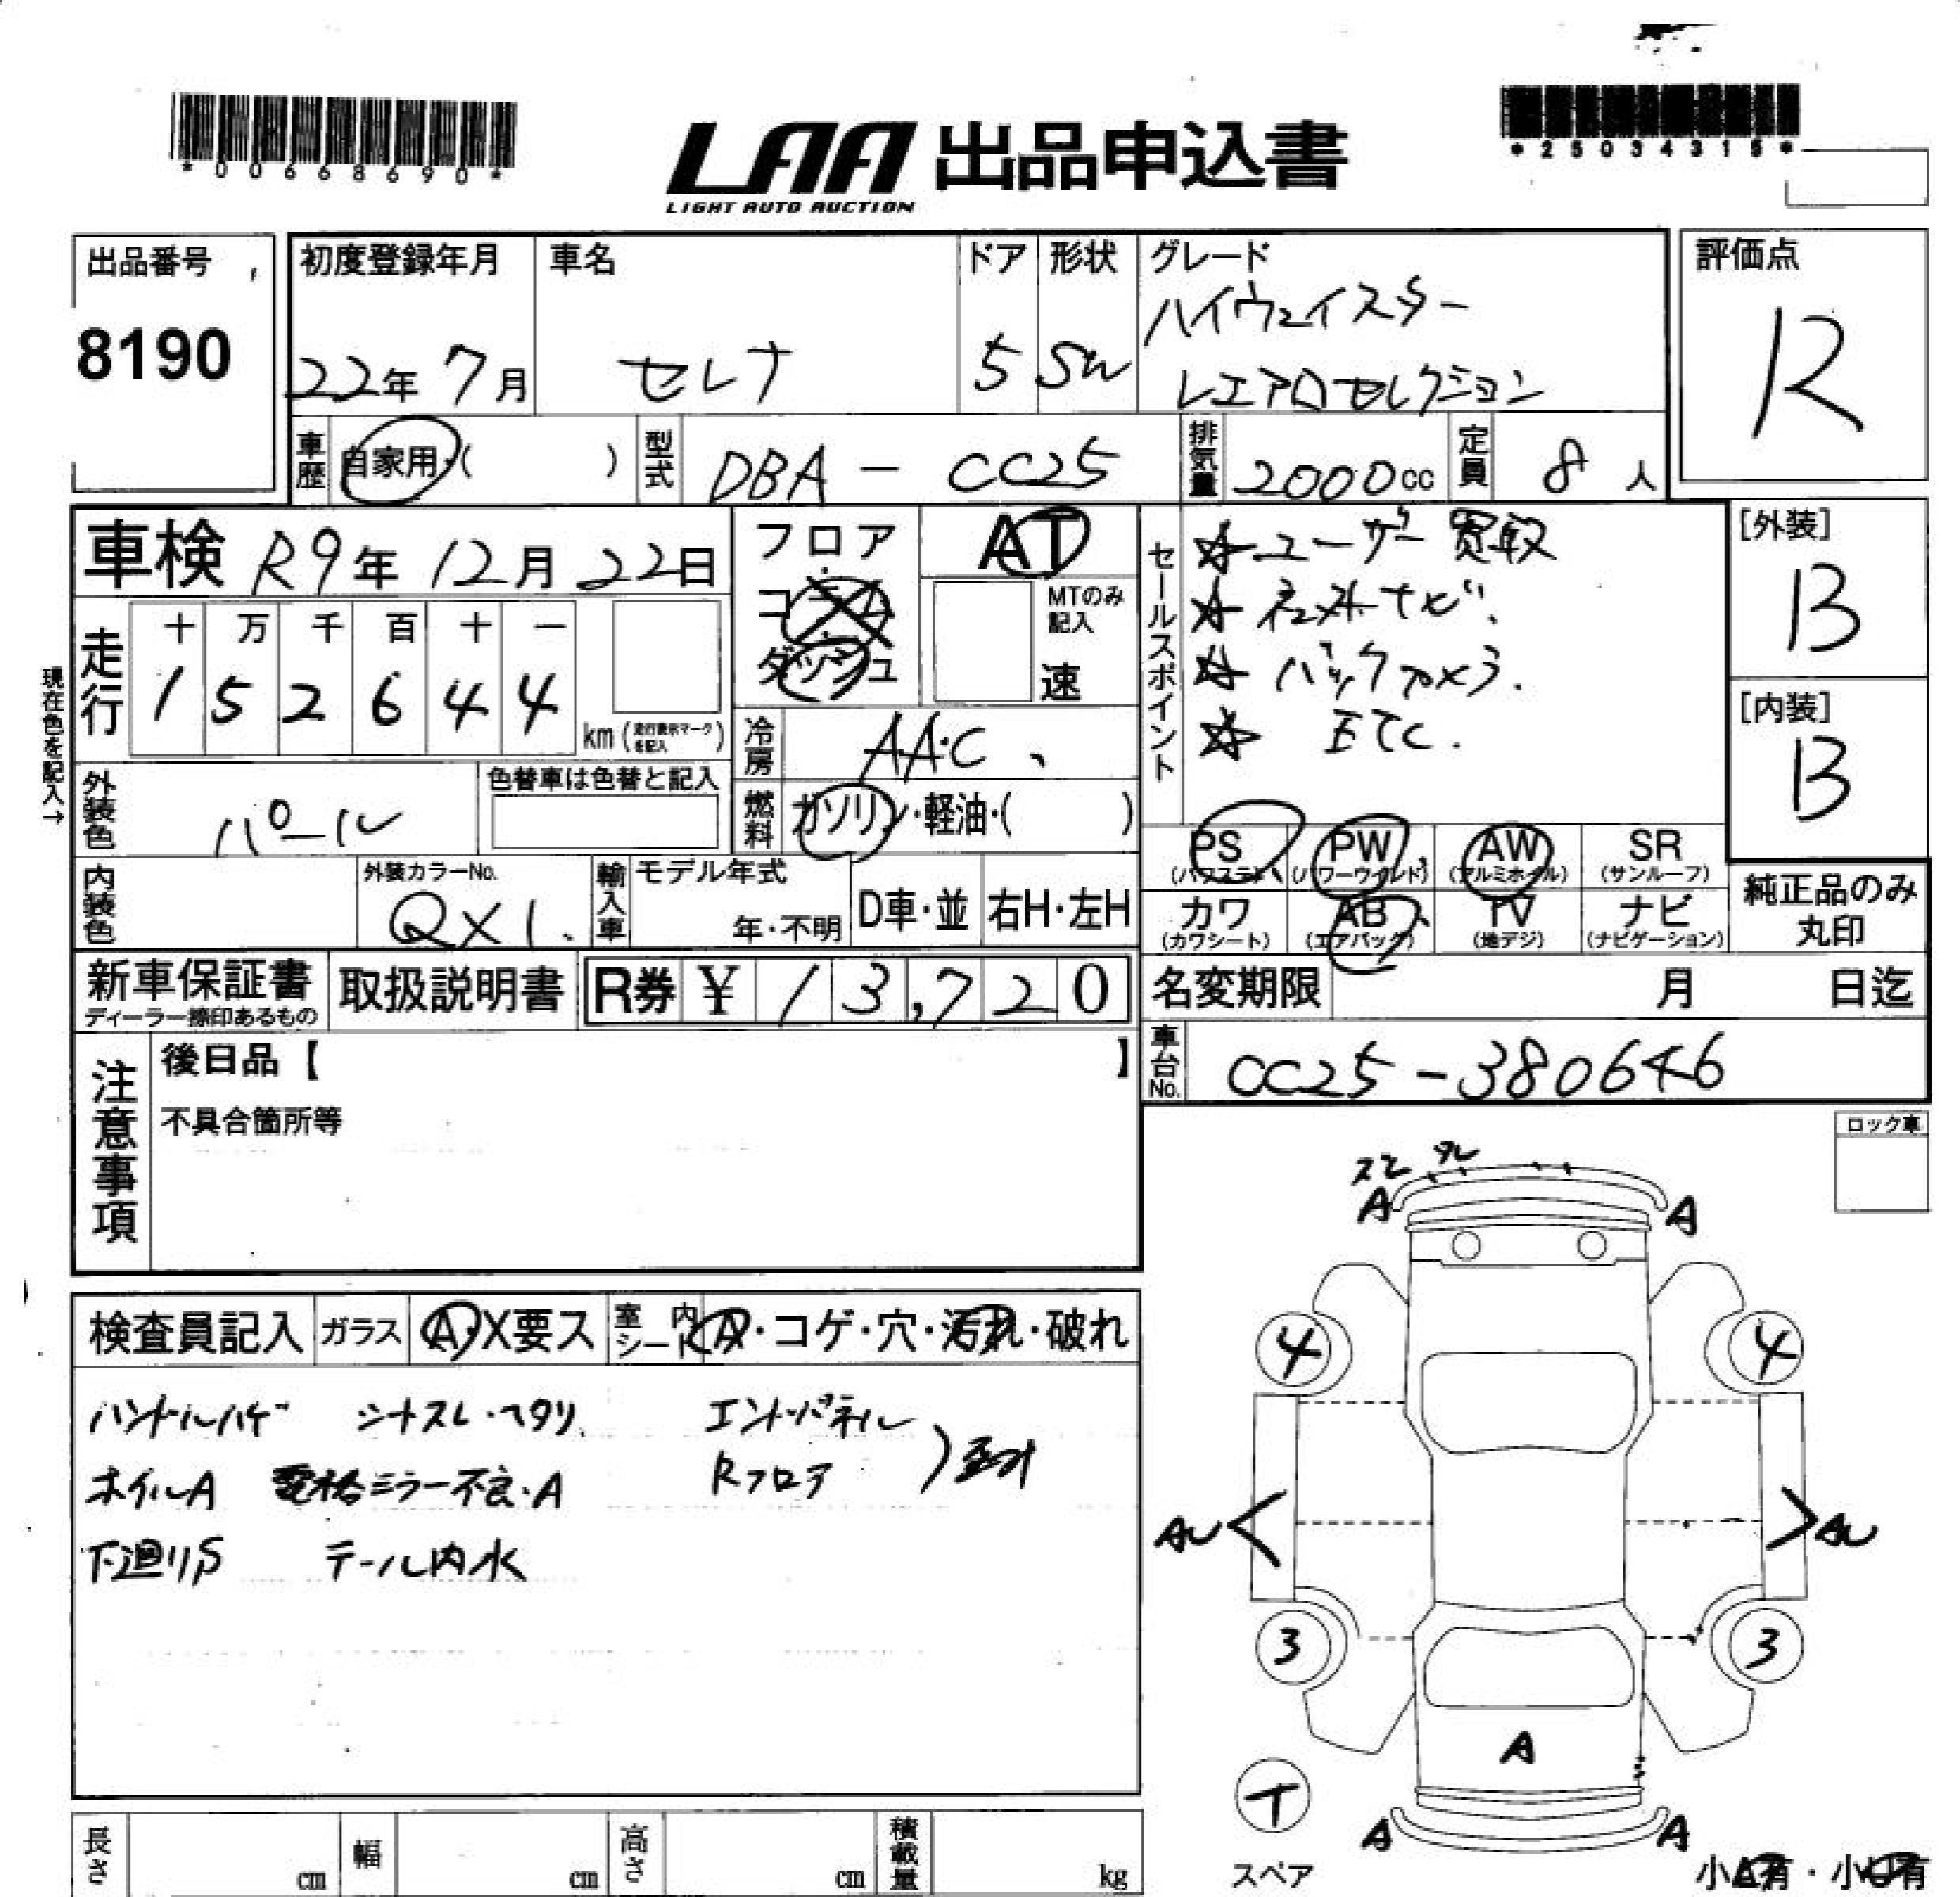 *00668690*
LAA 出品申込書
LIGHT AUTO AUCTION
*25034315*
出品番号
8190
初度登録年月
22年 7月
車名
セレナ
ドア
5
形状
SW
グレード
ハイウェイスター
エアロセレクション
評価点
R
車歴
自家用・( )
型式
DBA-CC25
排気量
2000cc
定員
8人
車検 R9年 12月 22日
現在色を記入→
走行
十 万 千 百 十 一
1 5 2 6 4 4
km (走行表示マークを記入)
フロア
コラム
ダッシュ
AT
MTのみ記入
速
セールスポイント
☆ユーザー買取
☆社外ナビ.
☆バックカメラ.
☆ETC.
[外装]
B
[内装]
B
外装色
パール
色替車は色替と記入
冷房
AAC、
燃料
ガソリン・軽油・( )
PS
(パワステ)
PW
(パワーウインド)
AW
(アルミホイル)
SR
(サンルーフ)
内装色
外装カラーNo.
QX1.
輸入車
モデル年式
年・不明
D車・並
右H・左H
カワ
(カワシート)
AB
(エアバッグ)
TV
(地デジ)
ナビ
(ナビゲーション)
純正品のみ
丸印
新車保証書
ディーラー捺印あるもの
取扱説明書
R券 ¥ 13,720
名変期限 月 日迄
車台No.
CC25-380646
注意事項
後日品【 】
不具合箇所等
ロック車
検査員記入
ガラス
A・X要ス
室内シート
A・コゲ・穴・汚れ・破れ
ハンドルハゲ シナスレ・ヘタリ エンドパネル
ホイルA 電格ミラー不良・A Rフロア
下廻りS テール内水
A A
4 4
AU AU
3 3
A
T
スペア
A A
小A有・小U有
長さ cm
幅 cm
高さ cm
積載量 kg